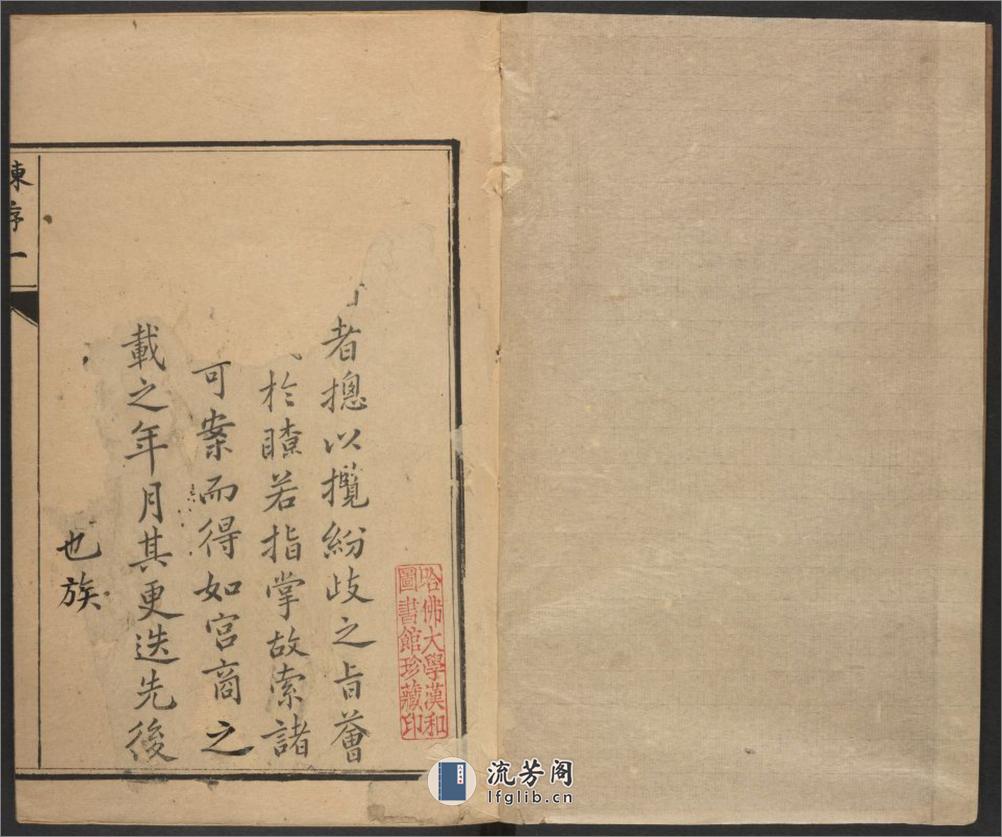 者摠以攬紛歧之旨薈
於瞭若指掌故索諸
可案而得如宫商之
載之年月其更迭先後
也族
陳序一
哈佛大學漢和
圖書館珍藏印
流芳阁
lfglib.cn